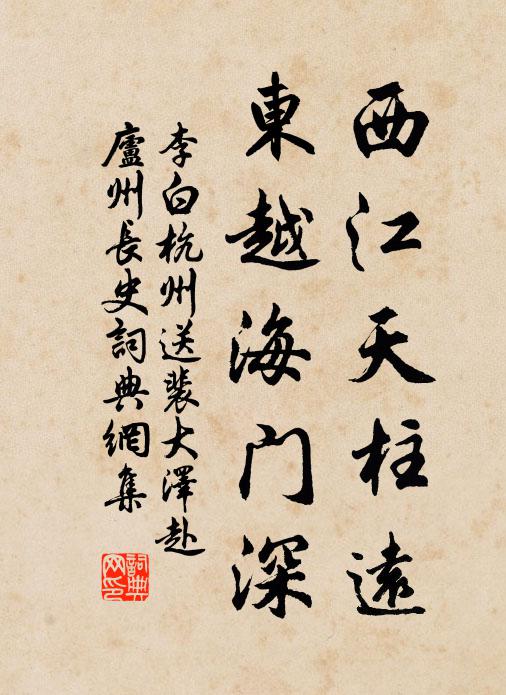 西江天柱遠
東越海门深
李白杭州送裴大澤赴
廬州長史詞典網集
詞典网印